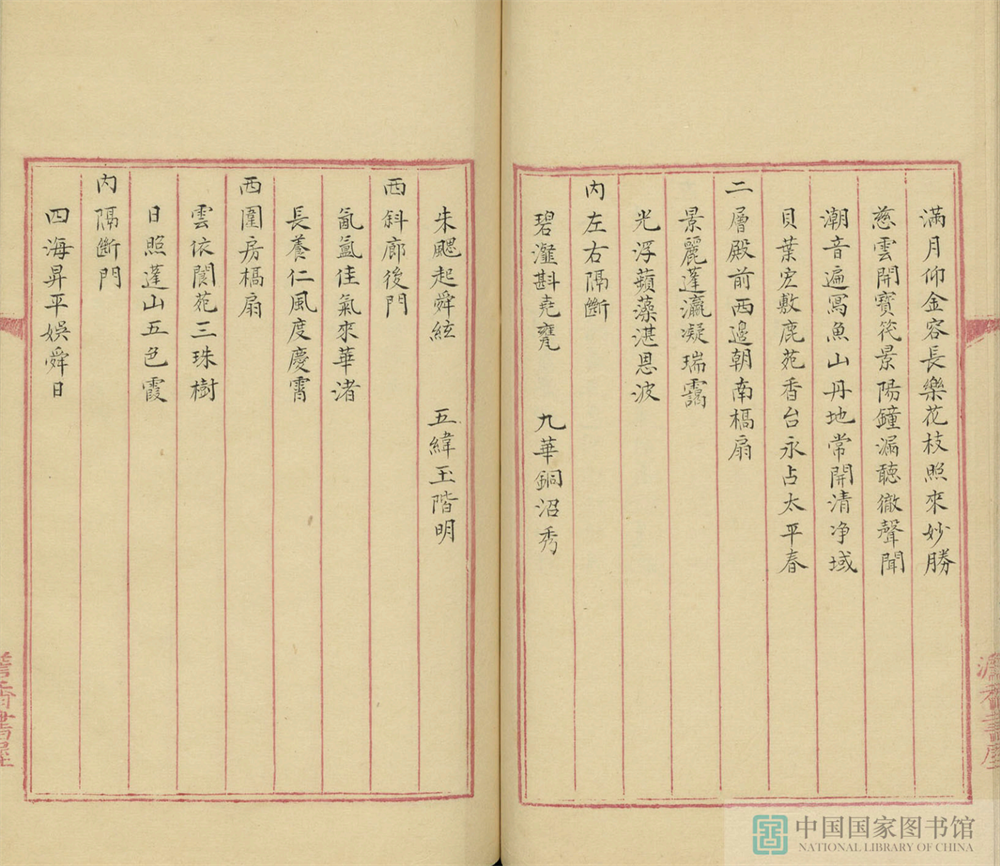 滿月仰金容長樂花枝照來妙勝
慈雲開寶筏景陽鐘漏聽徹聲聞
潮音遍寫魚山丹地常開清净域
貝葉宏敷鹿苑香台永占太平春
二層殿前西邊朝南槅扇
景麗蓬瀛凝瑞靄
光浮蘋藻湛恩波
內左右隔斷
碧瀣斟堯甕 九華銅沼秀
朱颸起舜絃 五緯玉階明
西斜廊後門
氤氳佳氣來華渚
長養仁風度慶霄
西圍房槅扇
雲依閬苑三珠樹
日照蓬山五色霞
內隔斷門
四海昇平娛舜日
書屋
中国国家图书馆
NATIONAL LIBRARY OF CHINA